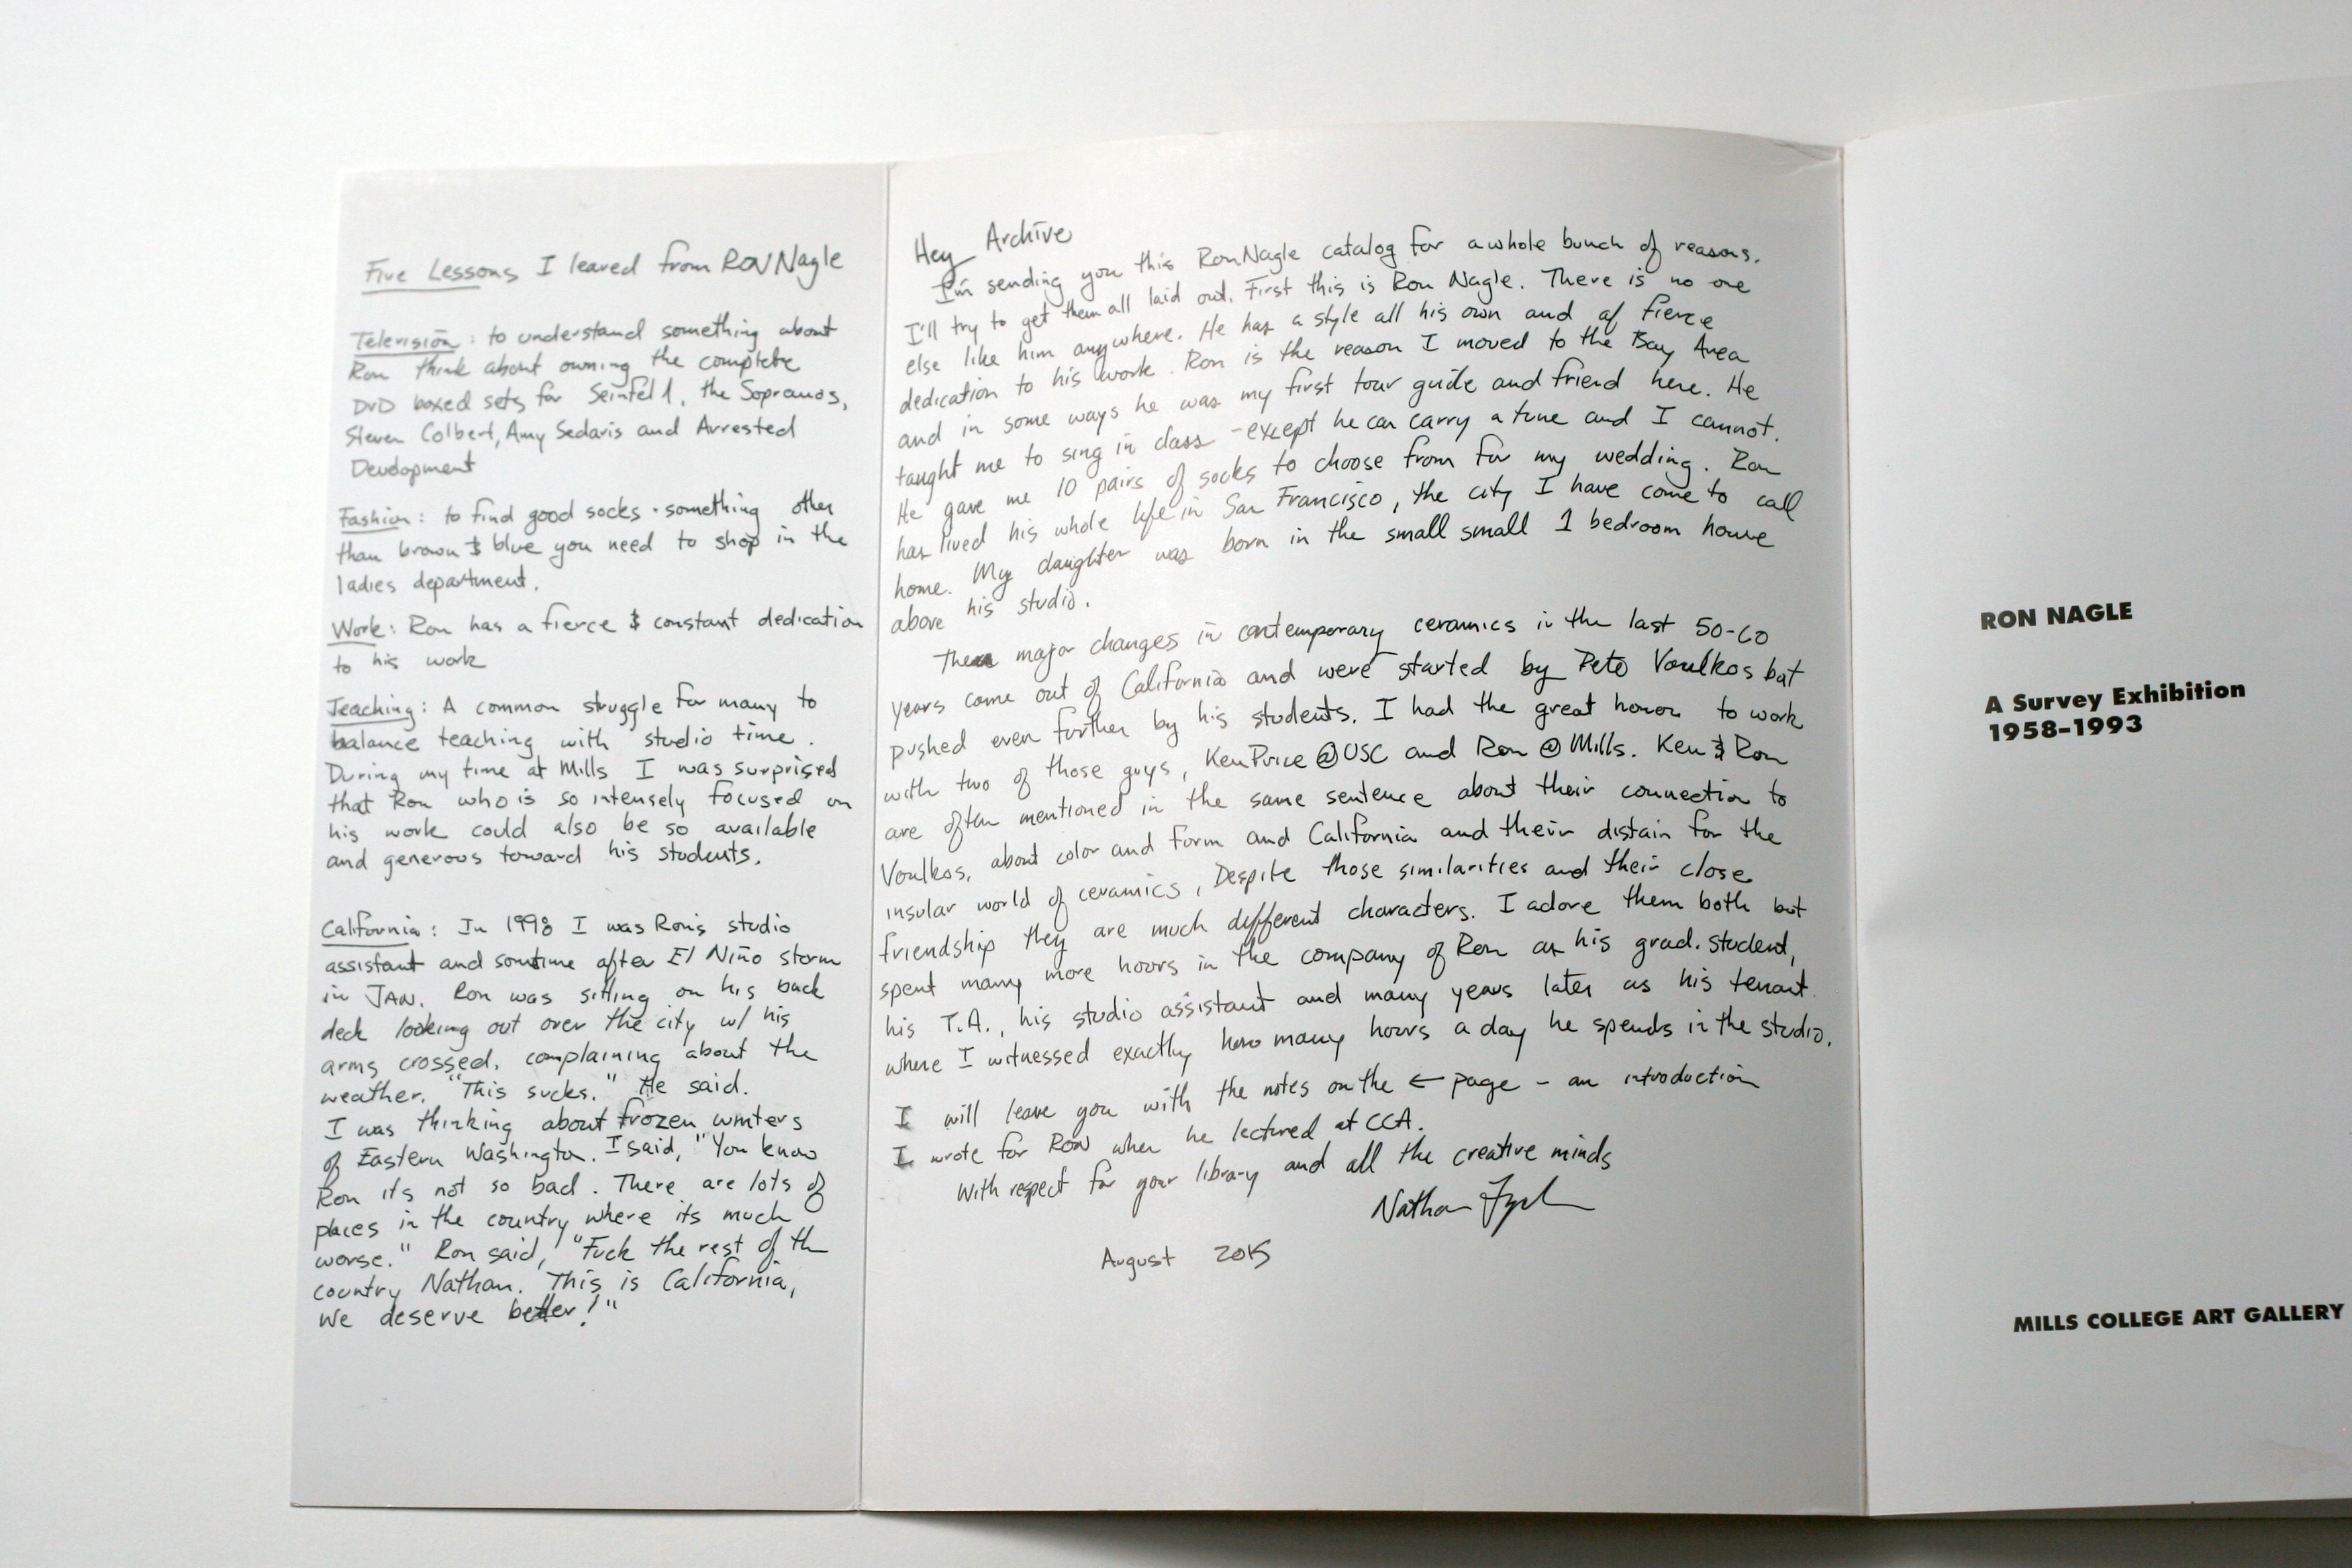 Five Lessons I leared from RON Nagle
Television: to understand something about
Ron think about owning the complete
DVD boxed sets for Seinfel1, the Sopranos,
Steven Colbert, Amy Sedaris and Arrested
Development
Fashion: to find good socks - something other
than brown & blue you need to shop in the
ladies department.
Work: Ron has a fierce & constant dedication
to his work
Teaching: A common struggle for many to
balance teaching with studio time.
During my time at Mills I was surprised
that Ron who is so intensely focused on
his work could also be so available
and generous toward his students.
California: In 1998 I was Ron's studio
assistant and sometime after El Niño storm
in JAN. Ron was sitting on his back
deck looking out over the city w/ his
arms crossed, complaining about the
weather. "This sucks." He said.
I was thinking about frozen winters
of Eastern Washington. I said, "You know
Ron its not so bad. There are lots of
places in the country where its much
worse." Ron said, "Fuck the rest of the
country Nathan. This is California,
We deserve better!"
Hey Archive
I'm sending you this Ron Nagle catalog for a whole bunch of reasons.
I'll try to get them all laid out. First this is Ron Nagle. There is no one
else like him anywhere. He has a style all his own and of fierce
dedication to his work. Ron is the reason I moved to the Bay Area
and in some ways he was my first tour guide and friend here. He
taught me to sing in class - except he can carry a tune and I cannot.
He gave me 10 pairs of socks to choose from for my wedding. Ron
has lived his whole life in San Francisco, the city I have come to call
home. My daughter was born in the small small 1 bedroom house
above his studio.
The major changes in contemporary ceramics in the last 50-60
years come out of California and were started by Pete Voulkos but
pushed even further by his students. I had the great honor to work
with two of those guys, Ken Price @ USC and Ron @ Mills. Ken & Ron
are often mentioned in the same sentence about their connection to
Voulkos, about color and form and California and their distain for the
insular world of ceramics. Despite those similarities and their close
friendship they are much different characters. I adore them both but
spent many more hours in the company of Ron as his grad. student,
his T.A., his studio assistant and many years later as his tenant
where I witnessed exactly how many hours a day he spends in the studio.
I will leave you with the notes on the ← page - an introduction
I wrote for RON when he lectured at CCA.
With respect for your library and all the creative minds
Nathan
August 2015
RON NAGLE
A Survey Exhibition
1958–1993
MILLS COLLEGE ART GALLERY